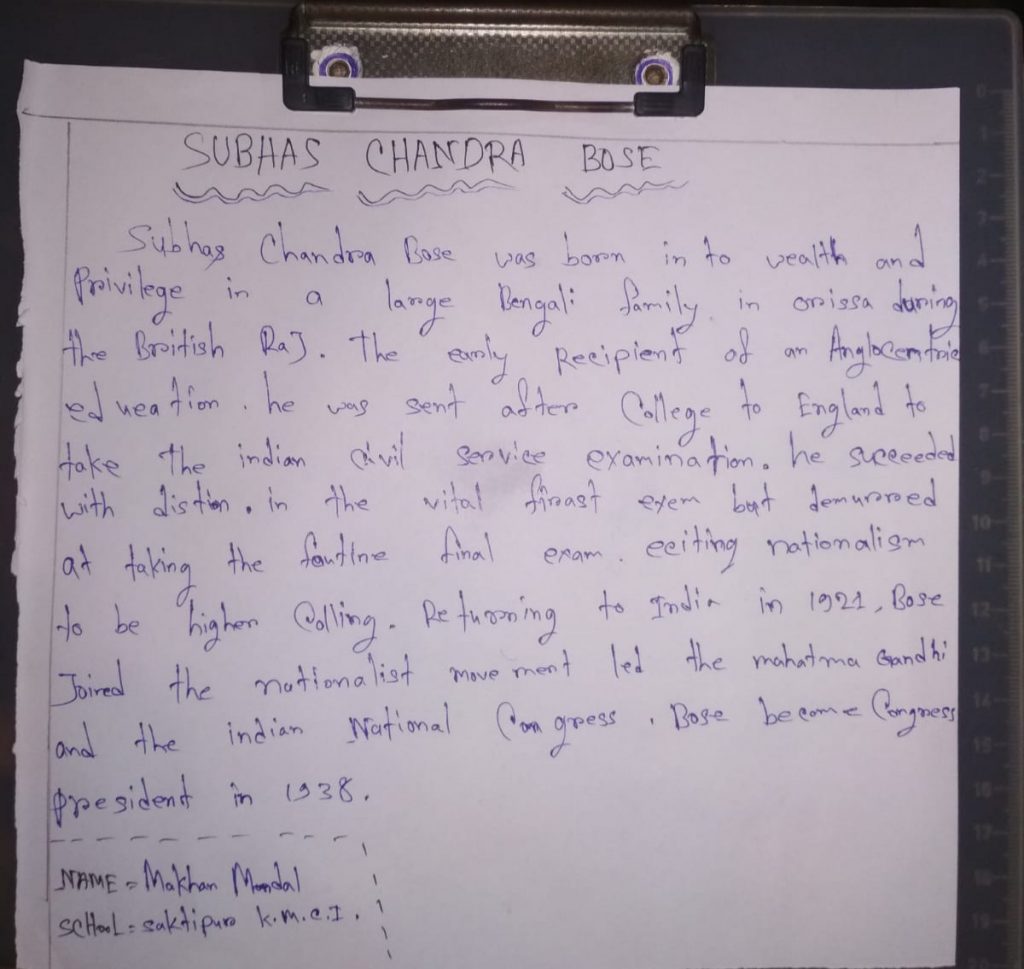 SUBHAS CHANDRA BOSE
Subhas Chandra Bose was born in to wealth and
Privilege in a large Bengali family. in orissa during
the British Raj. The early Recipient of an Anglocentric
education. he was sent after College to England to
take the indian civil service examination. he succeeded
with distion. in the vital first exem but demurred
at taking the final exam. eciting nationalism
to be higher Colling. Returning to India in 1921, Bose
Joired the nationalist movement led the mahatma Gandhi
and the indian National Congress. Bose become Congress
president in 1938.
NAME = Makhan Mondal
SCHOOL = saktipur K.M.C.I.